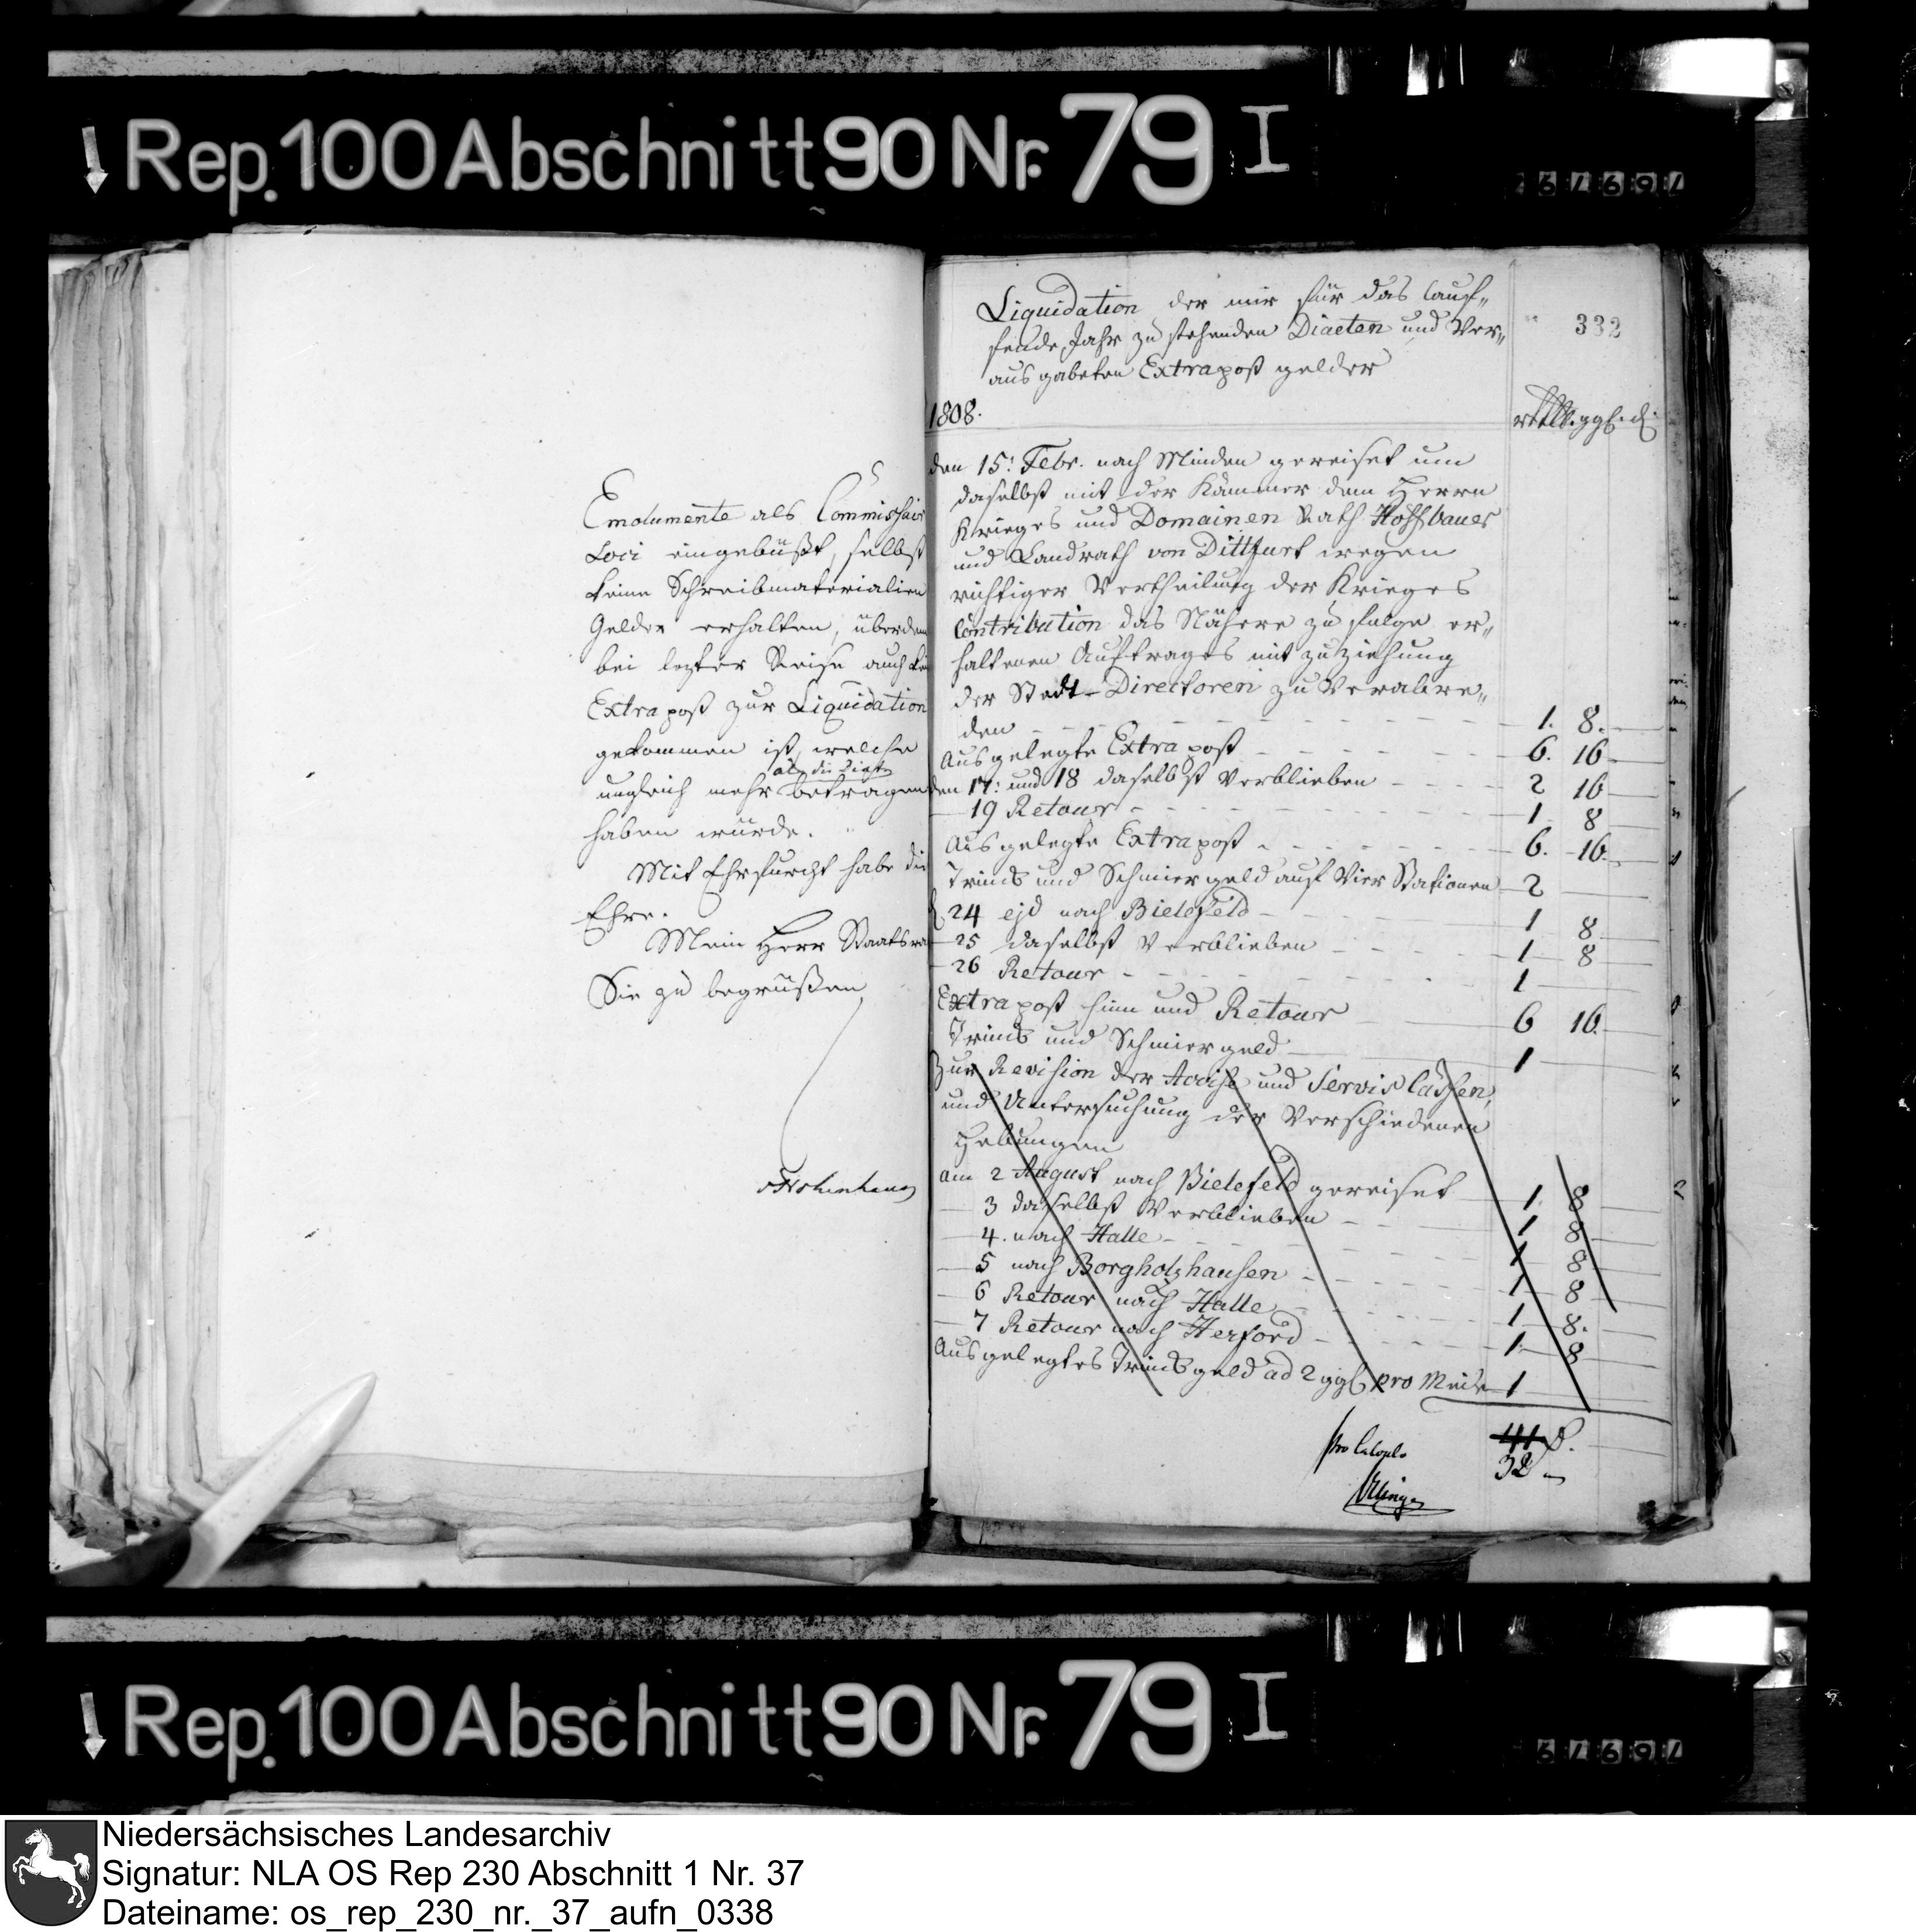 Rep. 100 Abschnitt 90 Nr. 79 I
Emolumente als Commissair
Loci eingebüßt, selbst
keine Schreibmaterialien
Gelder erhalten, überdem
bei lezter Reise auch
Extrapost zur Liquidation
gekommen ist, welche
als die Diäten
ungleich mehr betragen
haben würde.
Mit Ehrfurcht habe die
Ehre.
Mein Herr Staatsra
Sie zu begrüßen
vHohenhausen
332
Liquidation der mir für das lauf„
fende Jahr zu stehenden Diaeten und Ver„
ausgabeten Extrapost gelder
1808.
rthlr. ggl. d.
den 15. Febr. nach Minden gereiset um
daselbst mit der Kammer dem Herrn
Krieges und Domainen Rath Hoffbauer
und Landrath von Dittfurt wegen
richtiger Vertheilung der Krieges
Contribution das Nähere zu folge er„
haltenen Auftrages mit zuziehung
der Stadt-Directoren zu Verabre„
den 1. 8.
Ausgelegte Extrapost 6. 16
den 17. und 18 daselbst Verblieben 2 16
19 Retour 1 8
Ausgelegte Extrapost 6. 16.
Trink und Schmiergeld auf Vier Stationen 2
24 ejd nach Bielefeld 1 8
25 daselbst Verblieben 1 8
26 Retour 1
Extrapost hin und Retour 6 16.
Trink und Schmiergeld 1
Zur Revision der Accise und Servis Cassen,
und Untersuchung der Verschiedenen
Hebungen
am 2 August nach Bielefeld gereiset 1. 8
3 daselbst Verblieben 1 8
4. nach Halle 1 8
5 nach Borgholzhausen 1 8
6 Retour nach Halle 1 8.
7 Retour nach Herford 1. 8
Ausgelegtes Trinkgeld ad 2 ggl pro Meile 1
41 8.
32 -
pro Calculo
Rep. 100 Abschnitt 90 Nr. 79 I
Niedersächsisches Landesarchiv
Signatur: NLA OS Rep 230 Abschnitt 1 Nr. 37
Dateiname: os_rep_230_nr._37_aufn_0338